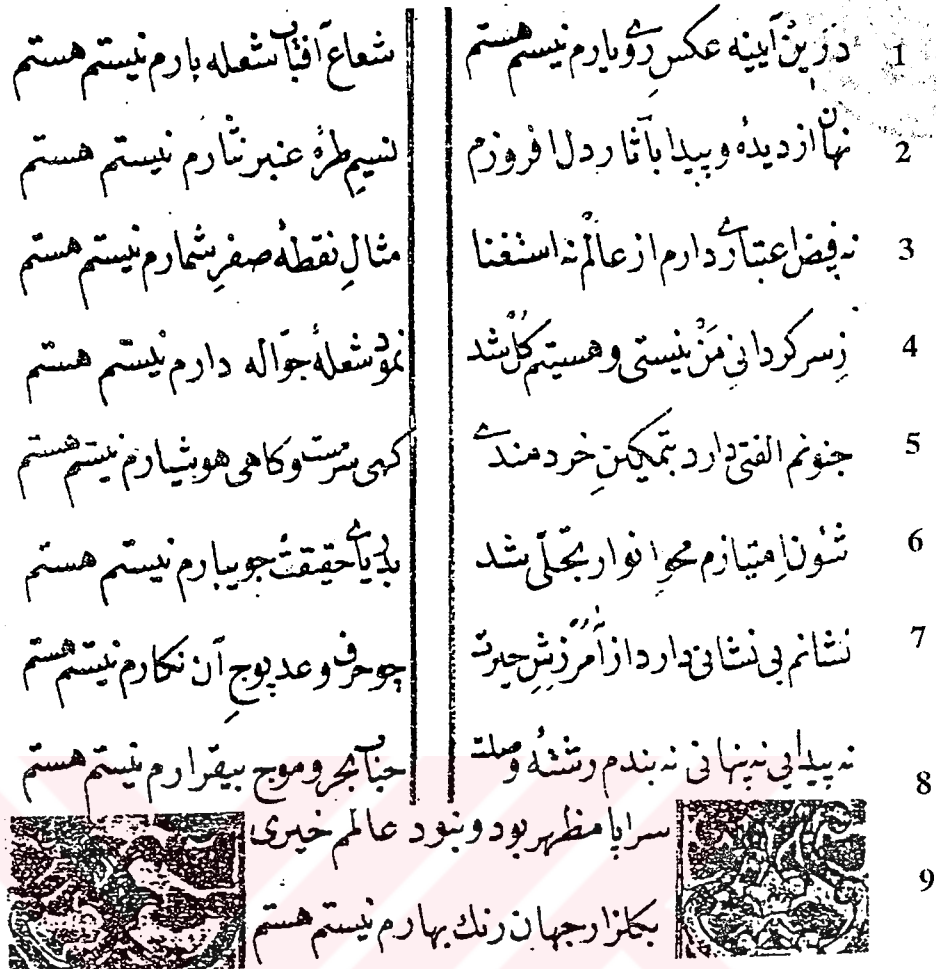 1 درزین آیینه عکس روی یارم نیستم هستم شعاع آفتاب شعله بارم نیستم هستم
2 نهان از دیده و پیدا بآثار دل افروزم نسیم طرۀ عنبر نثارم نیستم هستم
3 نه فیض اعتباری دارم از عالم نه استغنا مثالِ نقطۀ صفرِ شمارم نیستم هستم
4 زِسر کردانیِ من نیستی و هستیم کل شد نمود شعلۀ جوّاله دارم نیستم هستم
5 جنونم الفتی دارد بتمکینِ خردمندی کهی سرمست و کاهی هوشیارم نیستم هستم
6 شئون امتیازم محو انوار تجلّی شد بدریای حقیقت جویبارم نیستم هستم
7 نشانم بی نشانی دارد از حیرت چو حرف وعد پوچِ آن نکارم نیستم هستم
8 نه پیدایی نه پنهانی نه بندم رشتۀ وصلت حباب بحر و موج بیقرارم نیستم هستم
9 سراپا مظهر بود و نبود عالمم خیری
بکلزار جهان رنك بهارم نیستم هستم